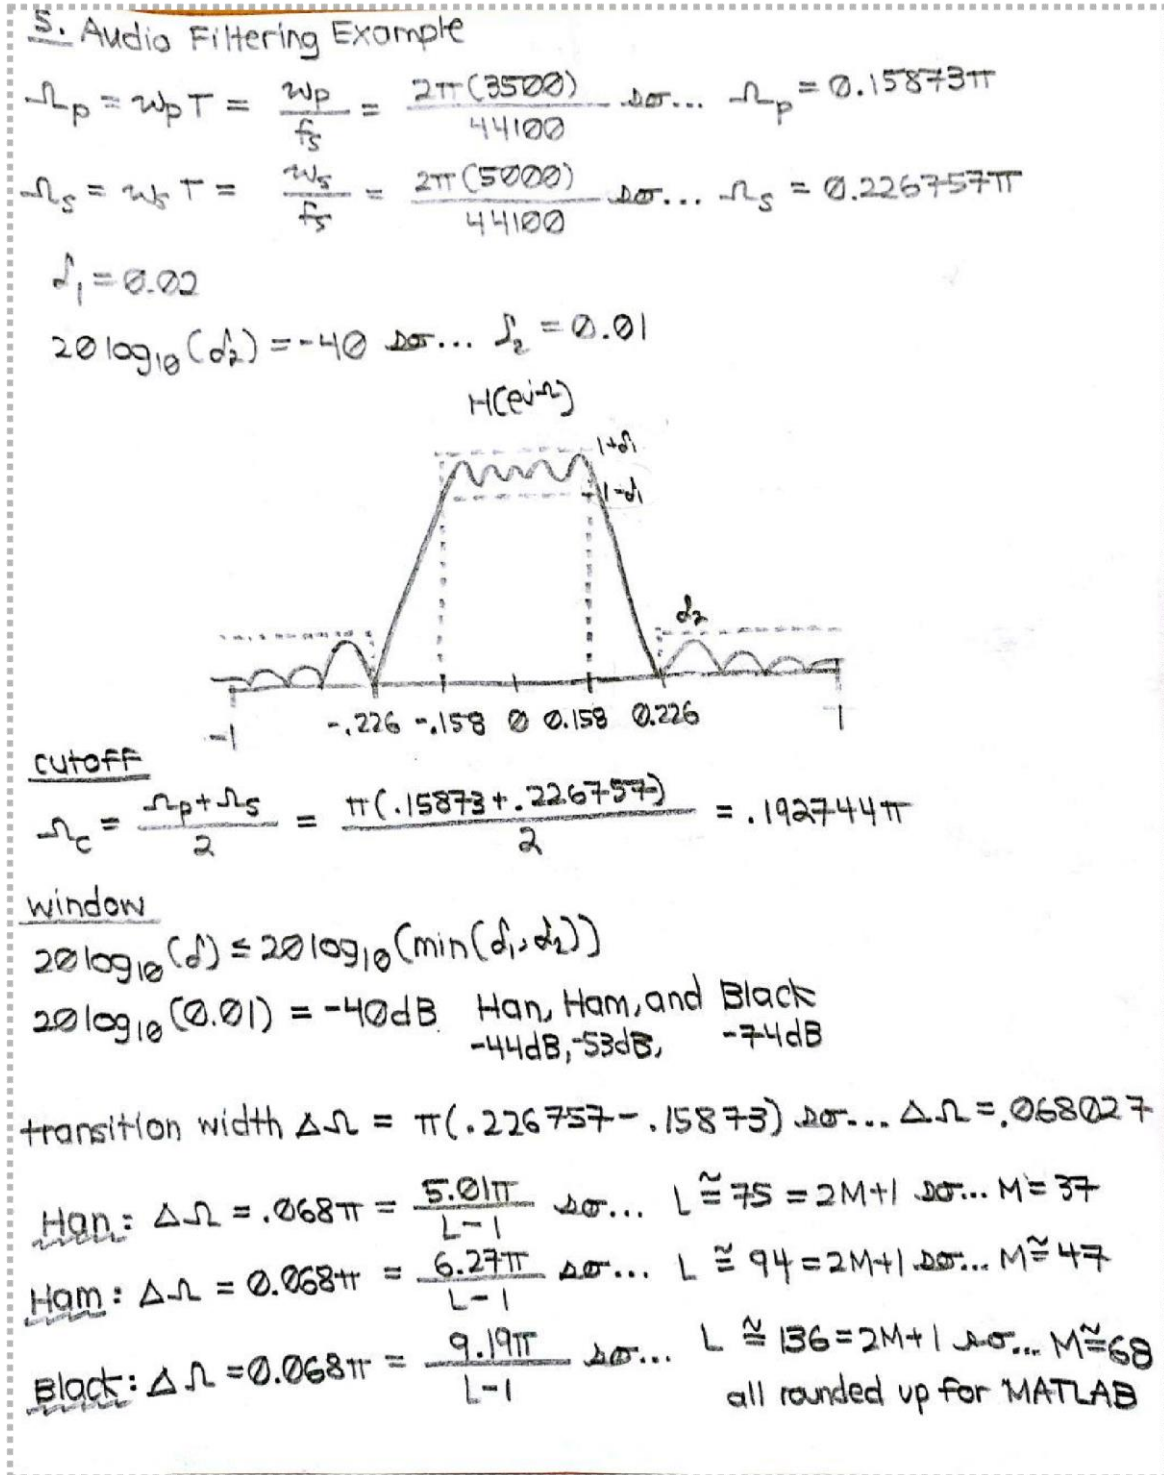 5. Audio Filtering Example
Ωp = ωpT = ωp/fs = 2π(3500)/44100 so... Ωp = 0.15873π
Ωs = ωsT = ωs/fs = 2π(5000)/44100 so... Ωs = 0.226757π
δ1 = 0.02
20log10(δ2) = -40 so... δ2 = 0.01
H(ejΩ)
1+δ1
1-δ1
δ2
-1 -.226 -.158 0 0.158 0.226 1
cutoff
Ωc = (Ωp+Ωs)/2 = π(.15873+.226757)/2 = .192744π
window
20log10(δ) ≤ 20log10(min(δ1,δ2))
20log10(0.01) = -40dB Han, Ham, and Black
-44dB, -53dB, -74dB
transition width ΔΩ = π(.226757-.15873) so... ΔΩ = .068027
Han: ΔΩ = .068π = 5.01π/(L-1) so... L ≅ 75 = 2M+1 so... M = 37
Ham: ΔΩ = 0.068π = 6.27π/(L-1) so... L ≅ 94 = 2M+1 so... M ≅ 47
Black: ΔΩ = 0.068π = 9.19π/(L-1) so... L ≅ 136 = 2M+1 so... M ≅ 68
all rounded up for MATLAB